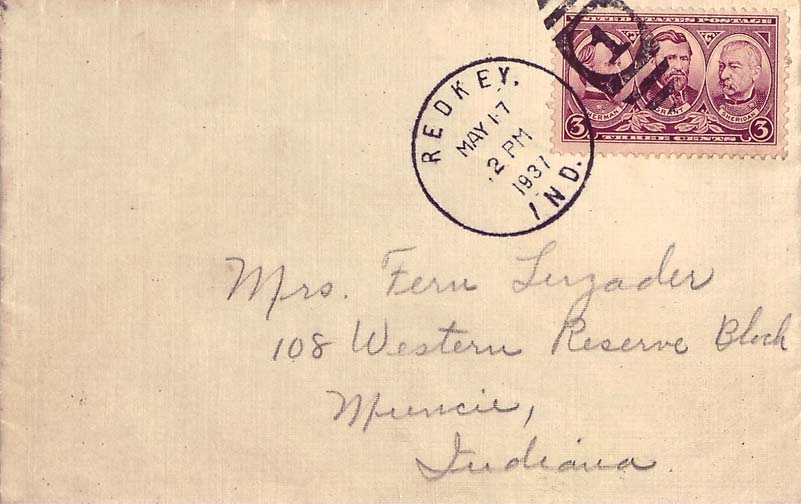 UNITED STATES POSTAGE
1
SHERMAN GRANT SHERIDAN
3 THREE CENTS 3
REDKEY.
MAY 17
2 PM
1937
IND.
Mrs. Fern Luzader
108 Western Reserve Block
Muncie,
Indiana